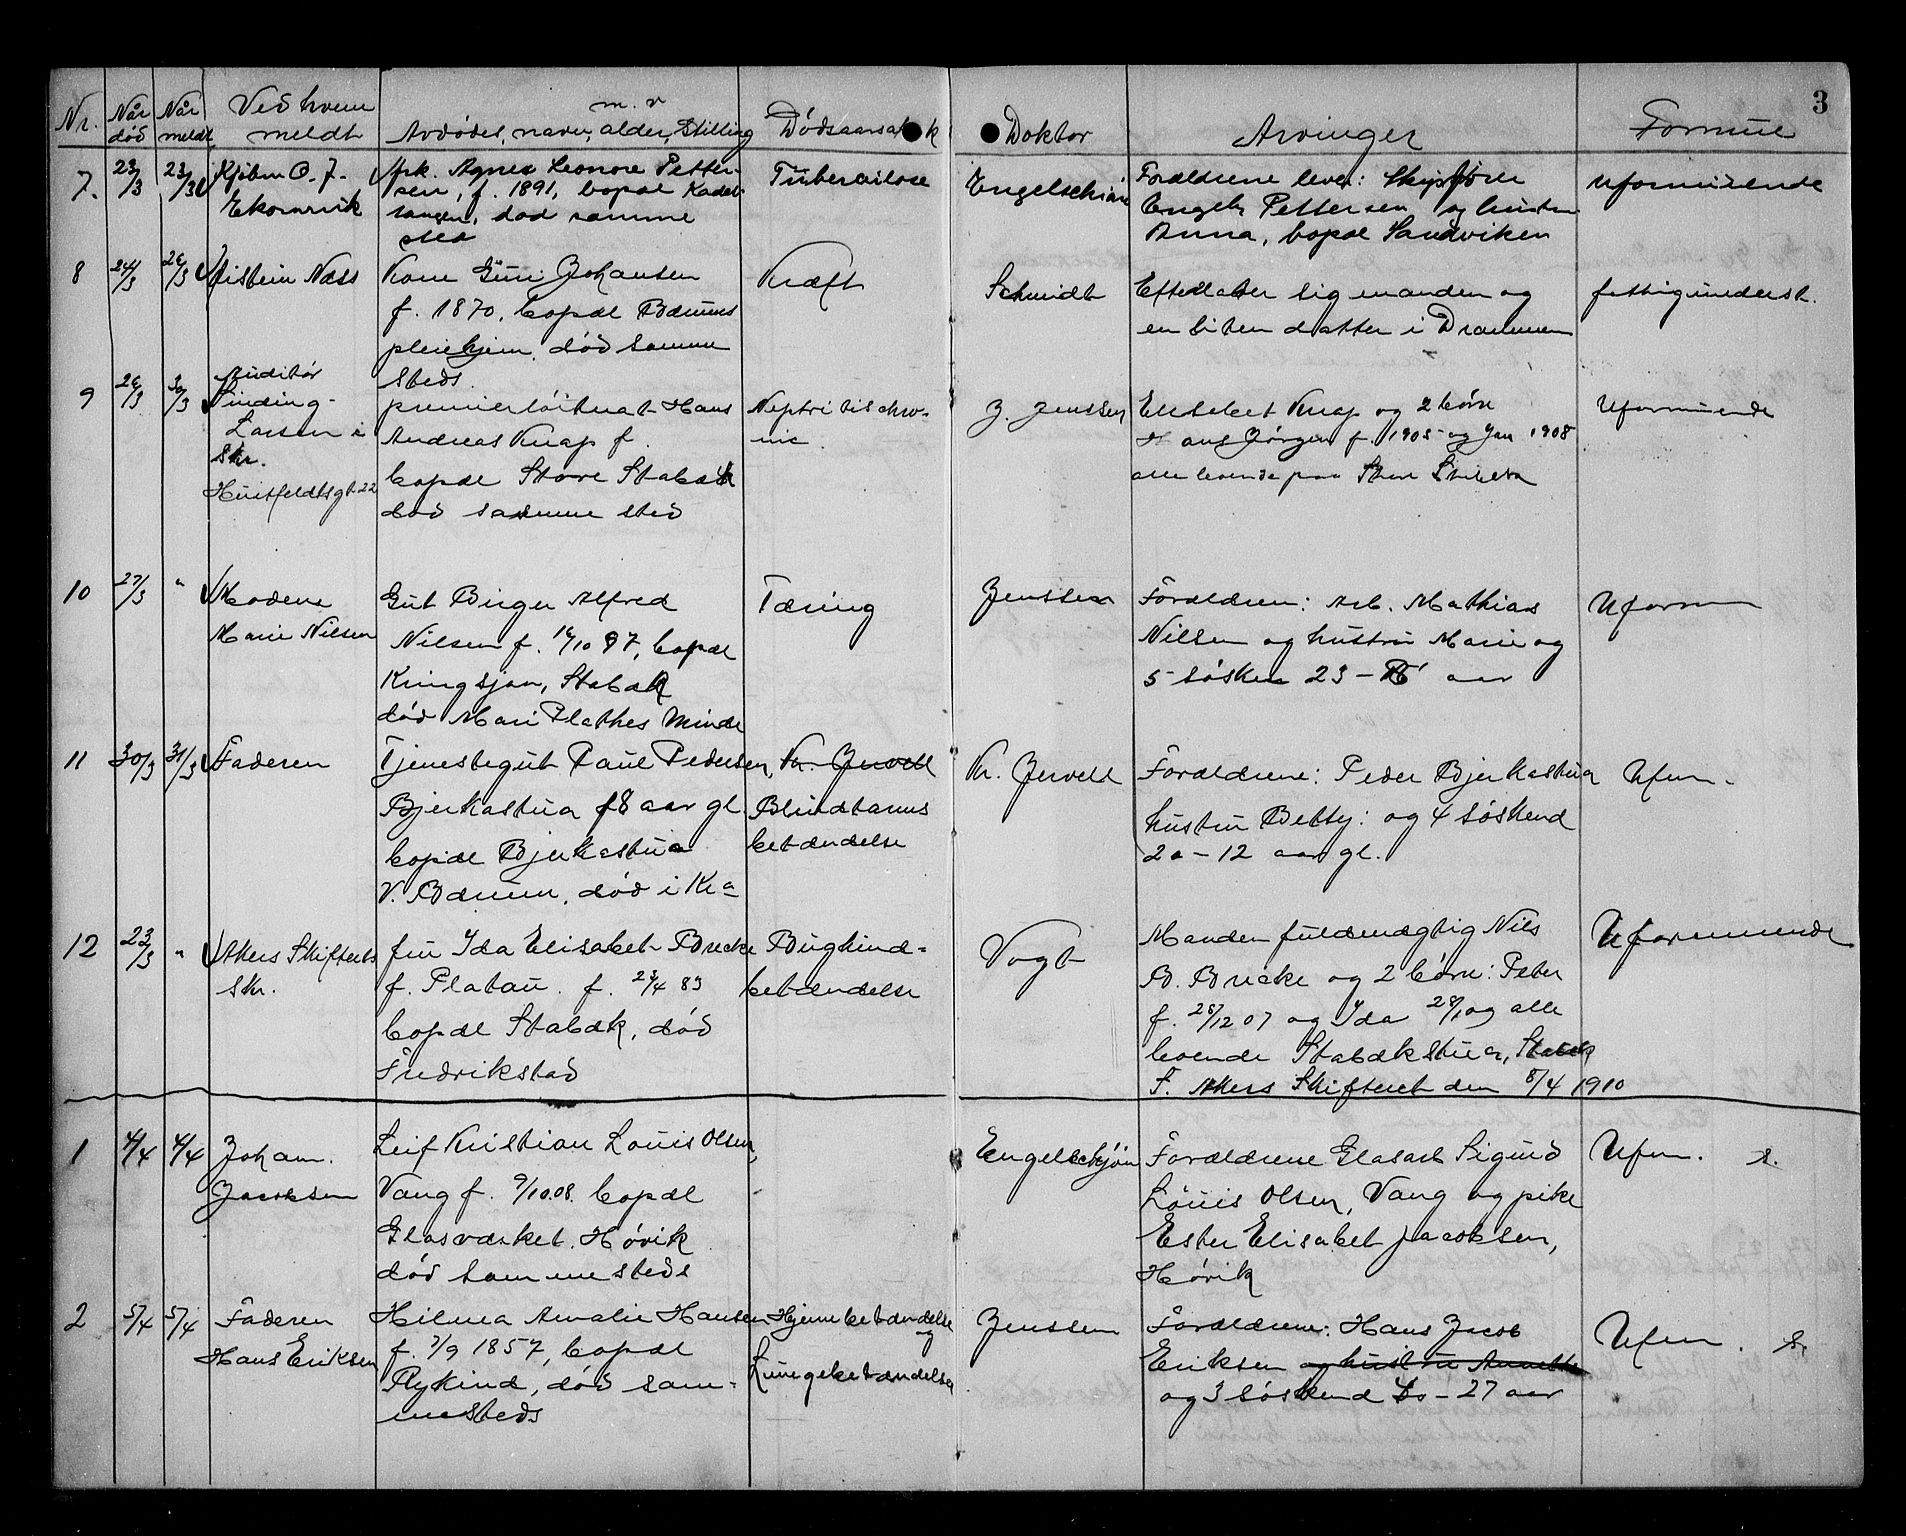 3
Nr. Når død Når meldt Ved hvem meldt Avdødes navn, alder, Stilling m. v Dødsaarsak Doktor Arvinger Formue
7. 23/3 23/3 Kjøbm O. J. Ekornrvik
Pk. Agnes Leonore Petter-
sen, f. 1891, bopæl
død samme
sted
Tuberculose
Engelschiøn
Forældrene lever: Skipsfører
Engelb. Pettersen og hustru
Anna, bopæl Sandviken
Uformuende
8 24/3 26/3 Øistein Næss
Kone Guri Johansen
f. 1870, bopæl Bærums
pleiehjem, død samme
steds.
Kræft
Schmidt
Efterlater sig manden og
en liten datter i Drammen
fattigunderst.
9 26/3 30/3 Auditør
Sinding-
Larsen i
Skr.
Huitfeldtsgt. 22
premierløitnat Hans
Andreas Knap f.
bopæl Store Stabæk
død samme sted
Neptritis chro-
nic
J. Jenssen
Elisabet Knap og 2 børn
Hans Jørgen f. 1905 og Jan 1908
alle boende paa Store Stabæk
Uformuende
10 27/3 " Moderen
Marie Nilsen
Gut Birger Alfred
Nilsen f. 16/10 97, bopæl
Kringsjaa, Stabæk
død Mari Plathes Minde
Tæring
Jenssen
Forældrene: Arb. Mathias
Nilsen og hustru Marie og
5 søsken 23 - aar
Uform
11 30/3 31/3 Faderen
Tjenestegut Paul Pedersen,
Bjerkastua 18 aar gl
bopæl Bjerkastua
V. Bærum, død i Kra
Kr. Jervell
Blindtarms
betændelse
Kr. Jervell
Forældrene: Peder Bjerkastua
hustru Betty: og 4 søskend
20-12 aar gl.
Ufm.
12 23/3 " Akers Skifteret
Skr.
fru Ida Elisabet Brecke
f. Platou. f. 23/4 83
bopæl Stabæk, død
Fredrikstad
Bughind-
betændelse
Vogt
Manden fuldmægtig Nils
B. Brecke og 2 børn: Peter
f. 25/12 07 og Ida 28/1 09 alle
boende Stabækstua, Stabæk
T. Akers Skifteret den 8/4 1910
Uformuende
1 4/4 4/4 Johan.
Jacobsen
Leif Kristian Louis Olsen,
Vang f. 9/10.08. bopæl
Glasværket. Høvik
død sammesteds
Engelschjøn
Forældrene Glasarb Sigurd
Louis Olsen, Vang og pike
Ester Elisabet Jacobsen,
Høvik
Ufm. s.
2 5/4 5/4 Faderen
Hans Eriksen
Hilma Amalie Hansen
f. 7/9 1857, bopæl
Rykind, død sam-
mesteds
Hjernebetændelse
og
Lungebetændelse
Jenssen
Forældrene: Hans Jacob
Eriksen og hustru Annette
og 3 søskend - 27 aar
Ufm. s.